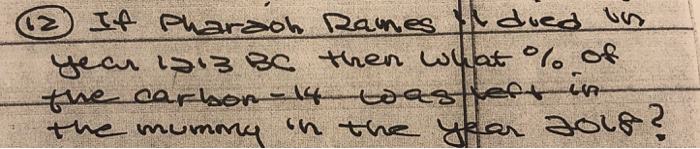 (12) If Pharaoh Rames II died in
year 1213 BC then what % of
the carbon-14 was left in
the mummy in the year 2018?